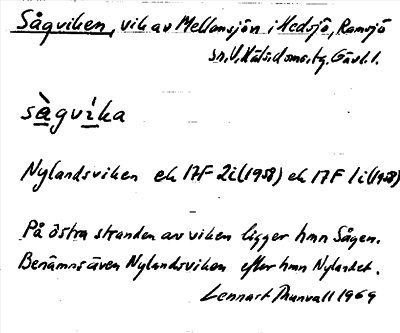 Sågviken, vik av Mellansjön i Hedsjö, Ramsjö
sn, V. Häls. doms. tg. Gävl. l.
sàgvika
Nylandsviken ek 17F 2i (1958) ek 17F 1i (1958)
På östra stranden av viken ligger hmn Sågen.
Benämns även Nylandsviken efter hmn Nylandet.
Lennart Thunvall 1969